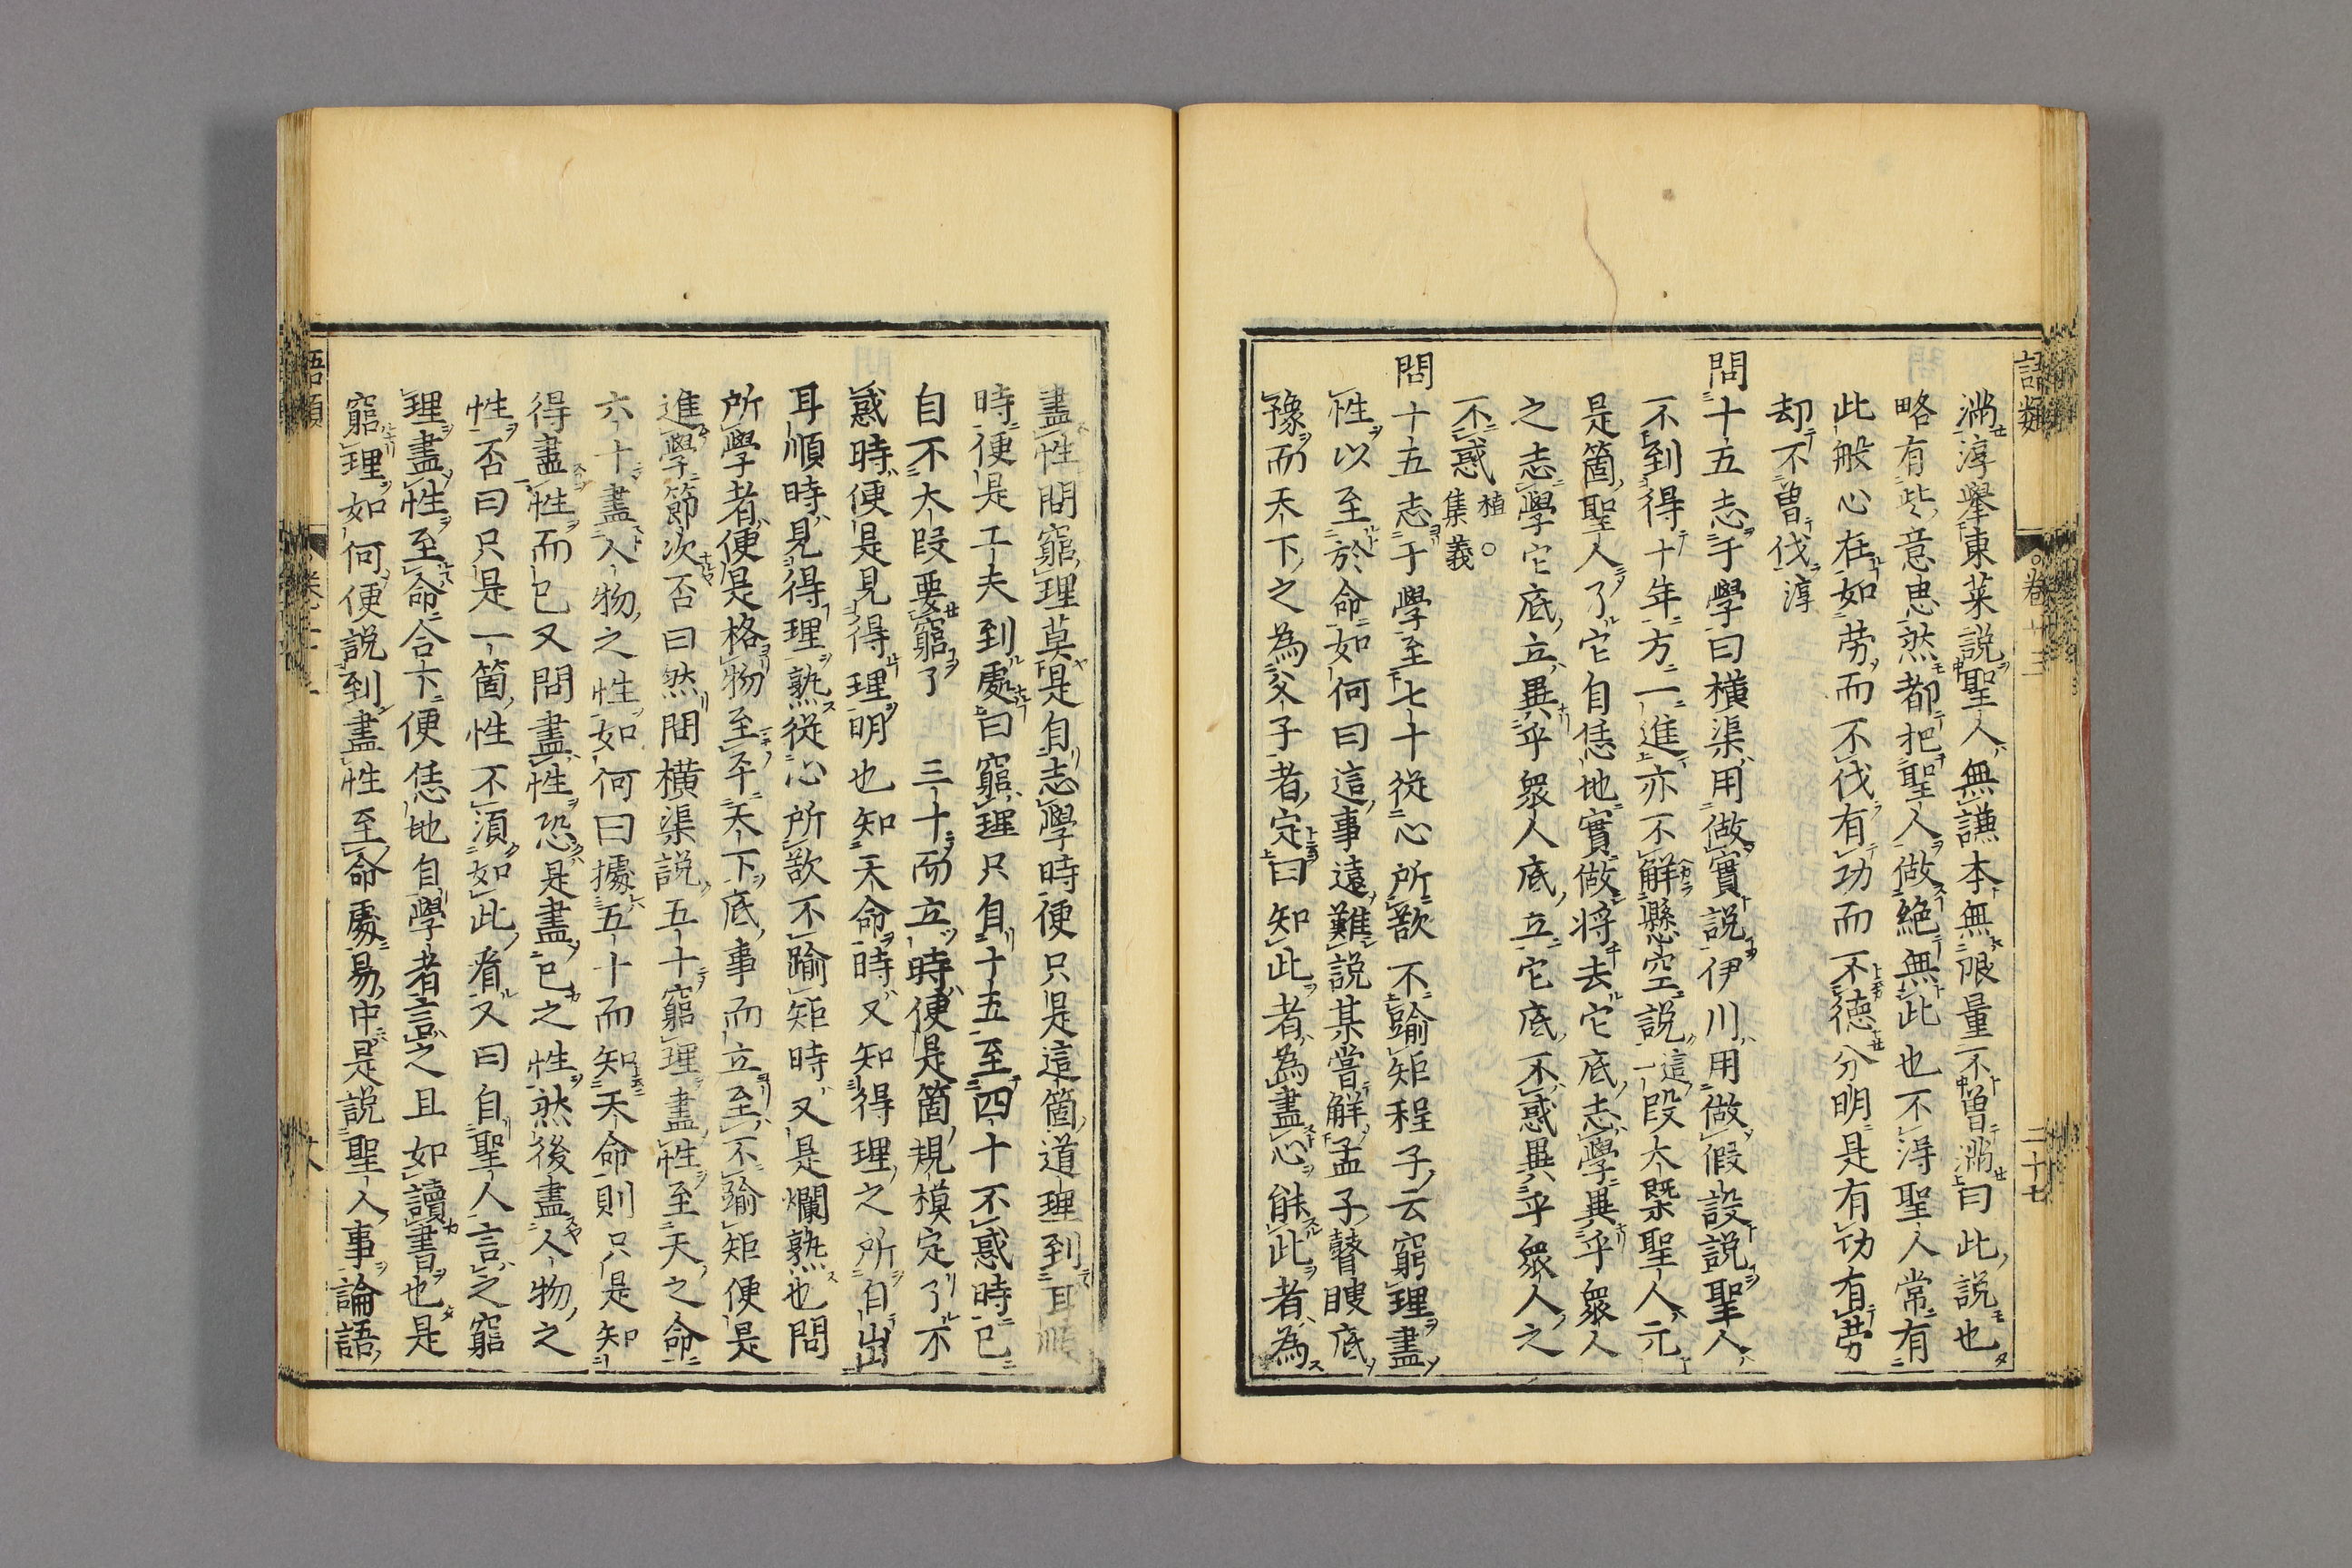 語類
卷二十三
二十七
滿淳舉東萊說聖人無謙本無限量不曾滿曰此說也
略有些意思然都把聖人做絕無此也不得聖人常有
此般心在如勞而不伐有功而不德分明是有功有勞
却不曾伐淳
問十五志于學曰橫渠用做實說伊川用做假設說聖人
不到得十年方一進亦不解懸空說這一段大槩聖人元
是箇聖人了它自恁地實做將去它底志學異乎衆人
之志學它底立異乎衆人底立它底不惑異乎衆人之
不惑植○集義
問十五志于學至七十從心所欲不踰矩程子云窮理盡
性以至於命如何曰這事遠難說某嘗解孟子瞽瞍底
豫而天下之為父子者定曰知此者為盡心能此者為
盡性問窮理莫是自志學時便只是這箇道理到耳順
時便是工夫到處曰窮理只自十五至四十不惑時已
自不大段要窮了三十而立時便是箇規模定了不
惑時便是見得理明也知天命時又知得理之所自出
耳順時見得理熟從心所欲不踰矩時又是爛熟也問
所學者便是格物至平天下底事而立至不踰矩便是
進學節次否曰然問橫渠說五十窮理盡性至天之命
六十盡人物之性如何曰據五十而知天命則只是知
得盡性而已又問盡性恐是盡己之性然後盡人物之
性否曰只是一箇性不須如此看又曰自聖人言之窮
理盡性至命合下便恁地自學者言之且如讀書也是
窮理如何便說到盡性至命處易中是說聖人事論語
語類